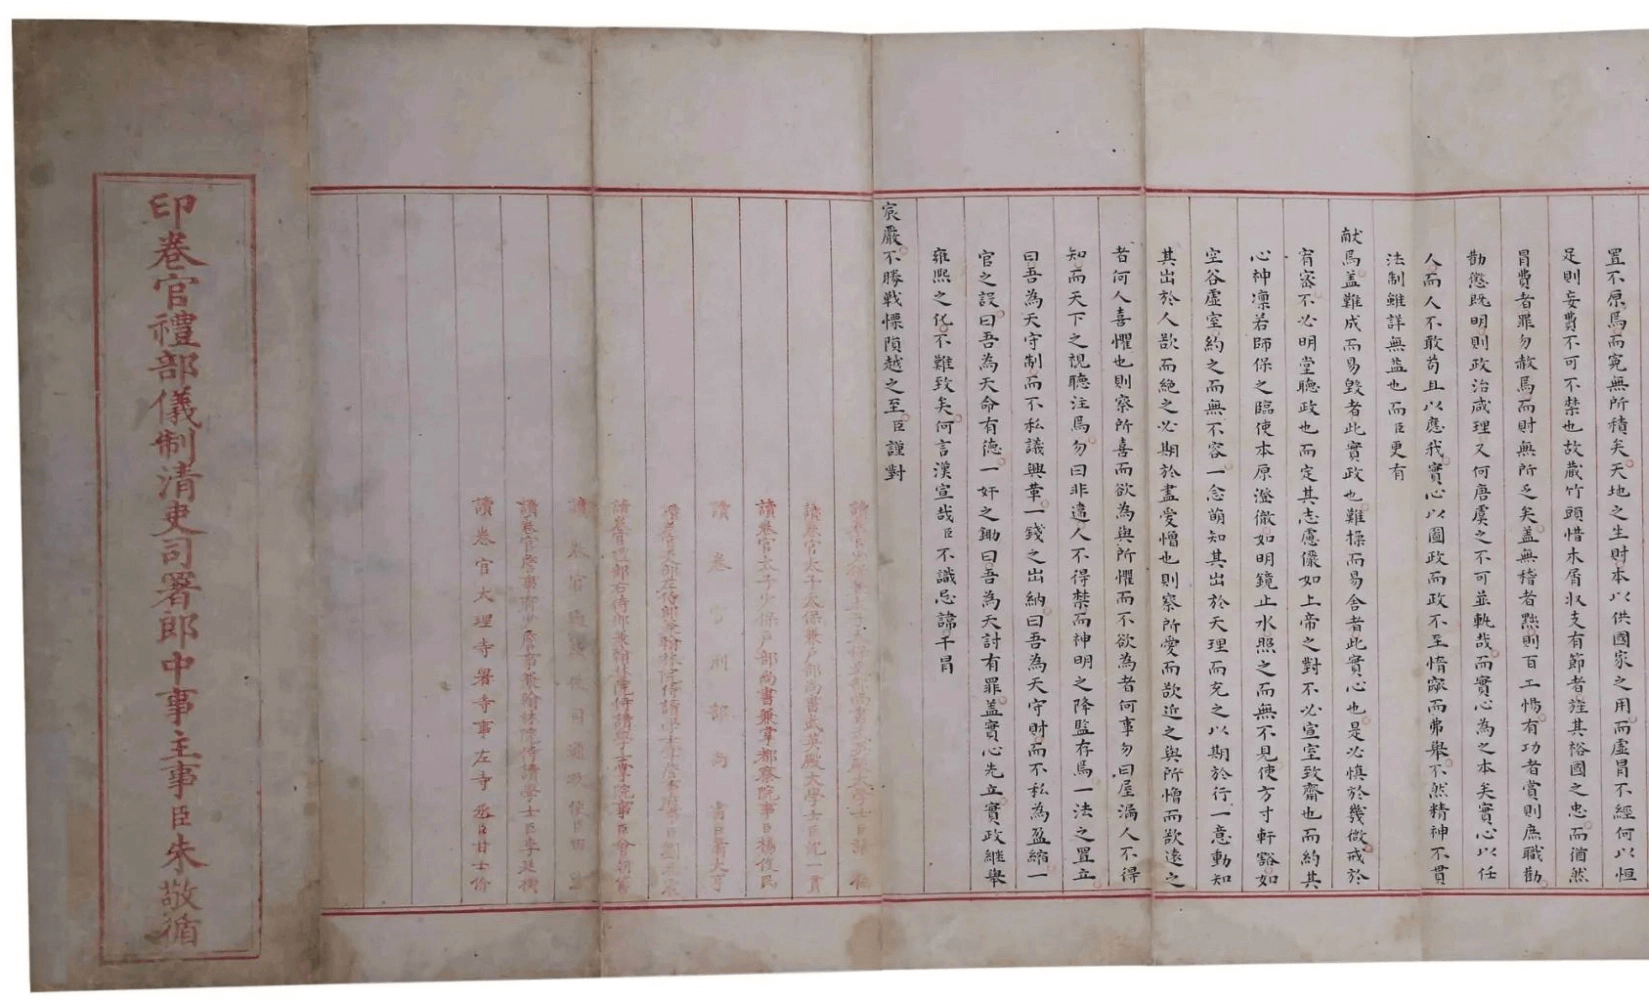 置不原焉而寃無所積矣天地之生財本以供國家之用而虛冒不經何以恒
足則妄費不可不禁也故藏竹頭惜木屑収支有節者謹其裕國之忠而猶然
冒費者罪勿赦焉而財無所乏矣蓋無稽者黜則百工惕有功者賞則庶職勸
勸懲既明則政治咸理又何唐虞之不可並軌哉而實心為之本矣實心以任
人而人不敢苟且以應我實心以圖政而政不至惰窳而弗舉不然精神不貫
法制雖詳無益也而臣更有
献焉蓋難成而易毀者此實政也難操而易舍者此實心也是必慎於幾微戒於
宥密不必明堂聽政也而定其志慮儼如上帝之對不必宣室致齋也而約其
心神凛若師保之臨使本原澄徹如明鏡止水照之而無不見使方寸軒豁如
空谷虛室約之而無不容一念萌知其出於天理而充之以期於行一意動知
其出於人欲而絶之必期於盡愛憎也則察所愛而欲近之與所憎而欲遠之
者何人喜懼也則察所喜而欲為與所懼而不欲為者何事勿曰屋漏人不得
知而天下之視聽注焉勿曰非違人不得禁而神明之降監存焉一法之置立
曰吾為天守制而不私議興革一錢之出納曰吾為天守財而不私為盈縮一
官之設曰吾為天命有德一奸之鋤曰吾為天討有罪蓋實心先立實政繼舉
雍熙之化不難致矣何言漢宣哉臣不識忌諱干冒
宸嚴不勝戰慄隕越之至臣謹對
讀卷官太子太保兼户部尚書武英殿大學士臣沈一貫
讀卷官太子少保户部尚書兼掌都察院事臣楊俊民
讀卷官刑部尚書臣蕭大亨
讀卷官禮部右侍郎兼翰林院侍讀學士掌院事臣曾朝節
讀卷官通政使司通政使臣田
讀卷官詹事府少詹事兼翰林院侍讀學士臣李廷機
讀卷官大理寺署寺事左寺丞臣甘士价
印卷官禮部儀制清吏司署郎中事主事臣朱敬循